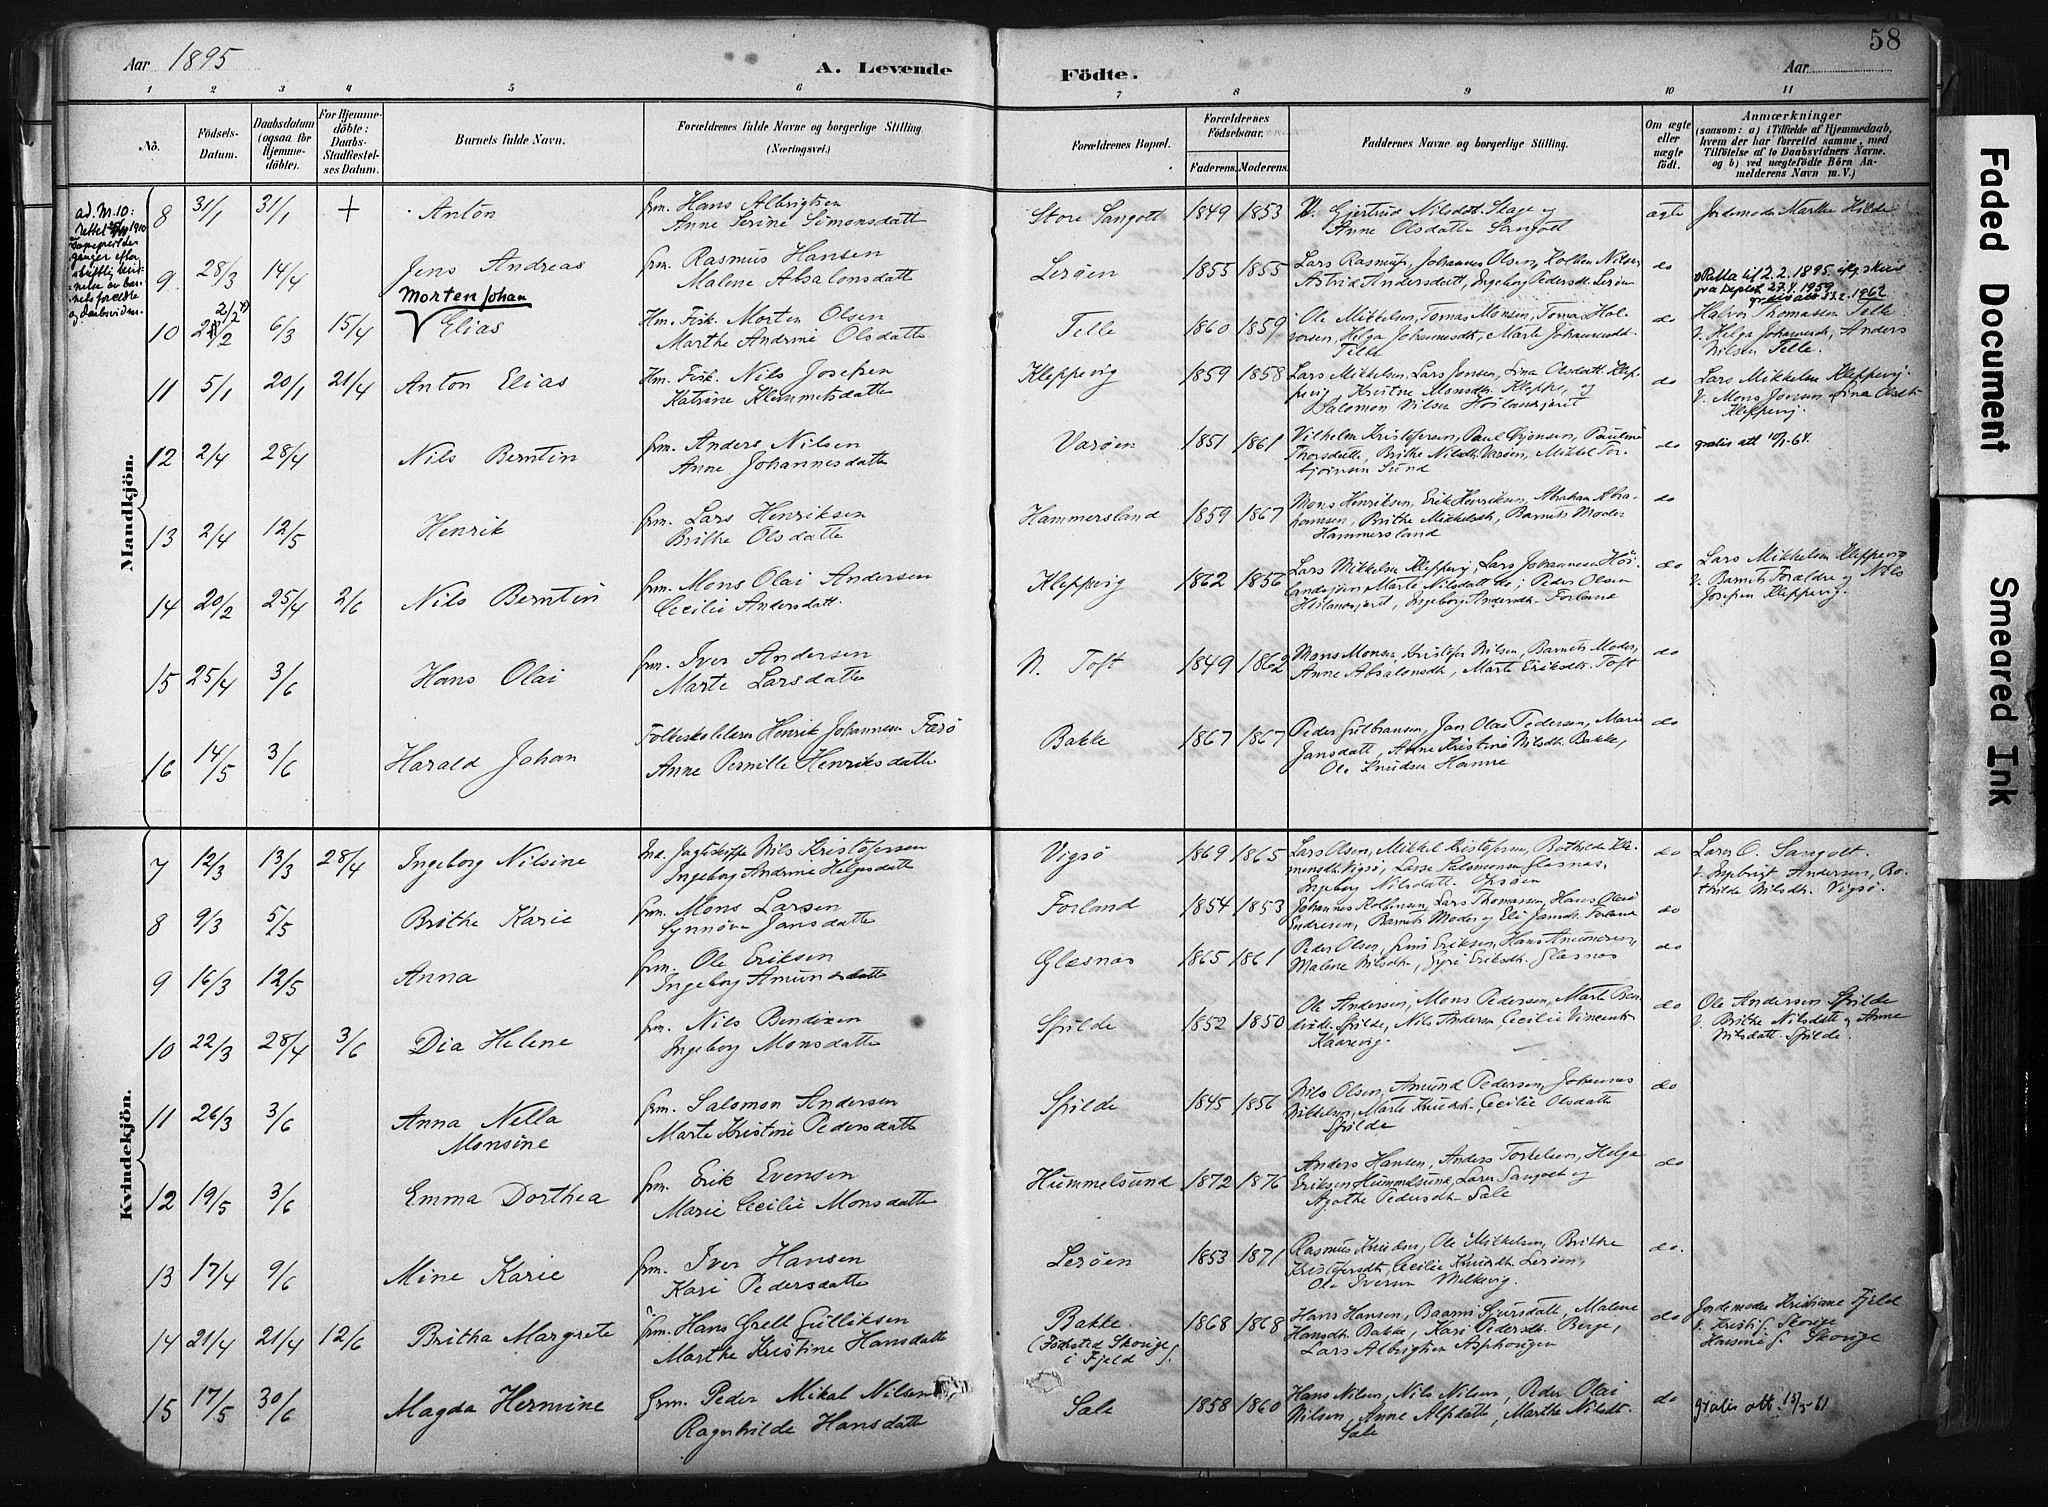 58
Aar 1895
A. Levende
Födte.
Aar
1 2 3 4 5 6 7 8 9 10 11
No.
Födsels-Datum.
Daabsdatum (ogsaa for Hjemmedöbte).
For Hjemmedöbte: Daabs-Stadfæstelses Datum.
Barnets fulde Navn.
Forældrenes fulde Navne og borgerlige Stilling. (Næringsvei.)
Forældrenes Bopæl.
Forældrenes Födselsaar.
Faderens. Moderens.
Faddernes Navne og borgerlige Stilling.
Om ægte eller uægte födt.
Anmærkninger
(saasom: a) i Tilfælde af Hjemmedaab, hvem der har forrettet samme, med Tilföielse af to Daabsvidners Navne, og b) ved uægtefödte Börn Anmelderens Navn m. V.)
Mandkjön.
ad. Nr. 10:
8 31/1 31/1 + Anton
Grm. Hans Albrigtsen
Anne Serine Simonsdatt
Store Sangolt 1849 1853
Gjertrud Nilsdtt. Skage og
Anne Olsdatte Sangolt
ægte
Jordemoder Marthe Hilde
9 28/3 14/4 Jens Andreas
Grm. Rasmus Hansen
Malene Absalonsdatt
Leröen 1855 1855
Astrid Andersdatt, Ingeborg Pedersdt. Leröen
do
10 6/3 15/4 Morten Johan Elias
Hm. Fisk. Morten Olsen
Marthe Andrine Olsdatte
Telle 1860 1859
Ole Mikkelsen, Tomas Monsen, Toma Halvorsen, Helga Johannesdt, Marte Johannesdt
Telle
do
Halvor Thomassen Telle
V. Helga Johannesdt, Anders
Nilsen Telle.
11 5/1 20/1 21/4 Anton Elias
Hm. Fisk. Nils Josefsen
Katrine Klemmetsdatte
Kleppevig 1859 1858
Lars Mikkelsen, Lars Jonsen, Sina Olsdatt. Kleppevig, Kristne Monsdtr. Kleppe, og
Salomon Nilsen Höilandsjoret
do
Lars Mikkelsen Kleppevig
V. Mons Jonsen, Sina Olsdt
Kleppevig.
12 2/4 28/4 Nils Berntin
Grm. Anders Nilsen
Anne Johannesdatte
Varöen 1851 1861
Vilhelm Kristofersen, Paul
Thorsdatte, Brithe Nilsdtr. Varöen, Mikkel Torbjörnsen Sund
do
13 2/4 12/5 Henrik
Grm. Lars Henriksen
Brithe Olsdatte
Hammersland 1859 1867
Mons Henriksen, Erik Henriksen, Abraham Abrahamsen, Brithe Mikkelsdt, Barnets Moder
Hammersland
do
14 20/2 25/4 2/6 Nils Berntin
Grm. Mons Olai Andersen
Cecilie Andersdatt.
Kleppvig 1862 1856
Lars Mikkelsen Kleppevig, Lars Johannesen Höilandsjoret, Marte Nilsdatt do, Peder Olsen
Höilandsjoret, Ingeborg Andersdt. Forland
do
Lars Mikkelsen Kleppevig
V. Barnets Forældre og Nils
Josefsen Kleppevig.
15 25/4 3/6 Hans Olai
Grm. Iver Andersen
Marte Larsdatte
N. Toft 1849 1862
Mons Monsen, Kristofer Nilsen, Barnets Moder,
Anne Absalonsdt, Marte Eriksdt. Toft
do
16 14/5 3/6 Harald Johan
Folkeskolelærer Henrik Johannesen Færö
Anne Pernille Henriksdatte
Bakke 1867 1867
Peder Gulbransen, Jan Olai Pedersen, Marie
Jansdatt, Anne Kristine Nilsdt. Bakke,
Ole Knudsen Hamre
do
Kvindekjön.
7 12/3 13/3 28/4 Ingeborg Nilsine
Ind. Jagtskipper Nils Kristofersen
Ingeborg Andrine Helgesdatt
Vigsö 1869 1865
Lars Olsen, Mikkel Kristofersen, Bothilde Klemensdt. Vigsö, Lars Salomonsen Glesnæs,
Ingeborg Nilsdatt.
do
Lars O. Sangolt.
V. Ingebrigt Andersen, Bothilde Nilsdt. Vigsö.
8 9/3 5/5 Brithe Karie
Grm. Mons Larsen
Synnöve Jansdatte
Forland 1854 1853
Johannes Kolbensen, Lars Thomassen, Hans Olai
Endresen, Barnets Moder og Eli Jansdt. Forland
do
9 16/3 12/5 Anna
Grm. Ole Eriksen
Ingeborg Amundsdatte
Glesnæs 1865 1861
Peder Olsen, Jens Eriksen, Hans Amundsen,
Malene Nilsdt., Syri Eriksdt. Glesnæs
do
10 22/3 28/4 3/6 Dia Helene
Grm. Nils Bendixen
Ingeborg Monsdatte
Spilde 1852 1850
Ole Andersen, Mons Pedersen, Marte Bendixdt. Spilde, Nils Andersen, Cecilie Vincentsdt
Kaarevig.
do
Ole Andersen Spilde
V. Brithe Nilsdatt og Anne
Nilsdatt. Spilde.
11 26/3 3/6 Anna Nella
Monsine
Grm. Salomon Andersen
Marte Kristine Pedersdatte
Spilde 1845 1856
Nils Olsen, Amund Pedersen, Johannes
Mikkelsen, Marte Knudsdt. Cecilie Olsdatte
Spilde
do
12 19/5 3/6 Emma Dorthea
Grm. Erik Evensen
Marie Cecilie Monsdatte
Hummelsund 1872 1876
Anders Hansen, Anders Torkelsen, Helga
Eriksen Hummelsund, Lars Sangolt og
Agathe Pedersdt. Sale
do
13 17/4 9/6 Mine Karie
Grm. Iver Hansen
Kari Pedersdatte
Leröen 1853 1871
Rasmus Knudsen, Ole Mikkelsen, Brithe
Kristofersdt, Cecilie Knudsdt Leröen,
Ole Iversen Milkevig.
do.
14 21/4 21/4 12/6 Britha Margrete
Grm. Hans Grett Gulliksen
Marthe Kristine Hansdatte
Bakke
(Födested Skoge i Fjeld)
1868 1868
Hans Hansen, Baarni Sjursdatt, Malene
Hansdt. Bakke, Kari Pedersdt. Berge,
Lars Albrigtsen Asphougen
do
Jordemoder Kristiane Fjeld
15 17/5 30/6 Magda Hermine
Grm. Peder Mikal Nilsen
Ragnhilde Hansdatte
Sale 1858 1860
Hans Nilsen, Nils Nilsen, Peder Olai
Nilsen, Anne Alfsdatte, Marthe Nilsdt.
Sale
do
gratis att. 15/5-61
Faded Document
Smeared Ink